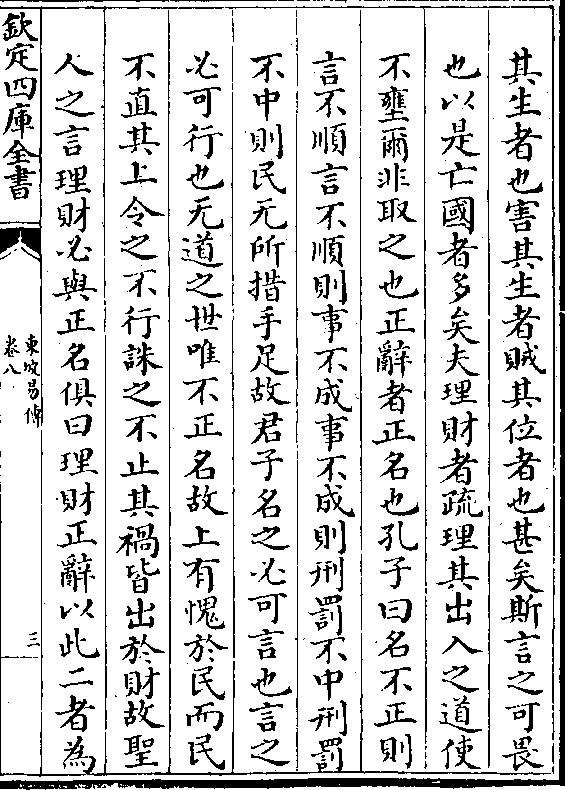 其生者也害其生者賊其位者也甚矣斯言之可畏
也以是亡國者多矣夫理財者疏理其出入之道使
不壅爾非取之也正辭者正名也孔子曰名不正則
言不順言不順則事不成事不成則刑罰不中刑罰
不中則民无所措手足故君子名之必可言也言之
必可行也无道之世唯不正名故上有愧於民而民
不直其上令之不行誅之不止其禍皆出於財故聖
人之言理財必與正名俱曰理財正辭以此二者為
欽定四庫全書
東坡易傳
卷八
三